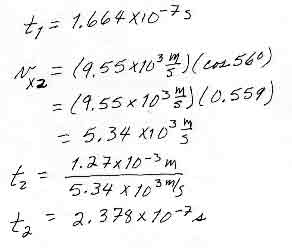 t₁ = 1.664 x10⁻⁷ s
v_x2 = (9.55x10³ m/s)(cos 56°)
= (9.55 x10³ m/s)(0.559)
= 5.34 x10³ m/s
t₂ = 1.27x10⁻³ m / 5.34 x 10³ m/s
t₂ = 2.378x10⁻⁷ s